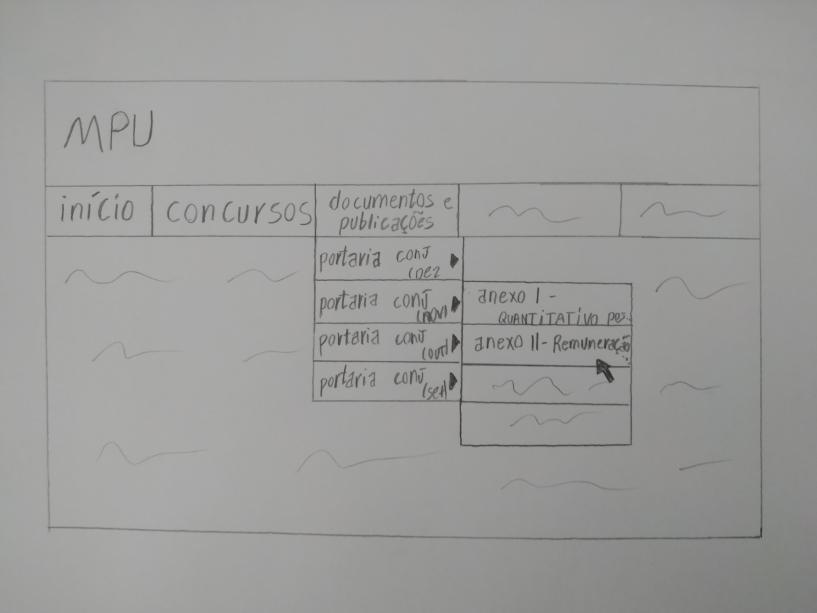 MPU
início
concursos
documentos e
publicações
portaria conj
(dez
portaria conj
(nov)
portaria conj
(out)
portaria conj
(set)
anexo I -
QUANTITATIVO pes.
anexo II - Remuneração